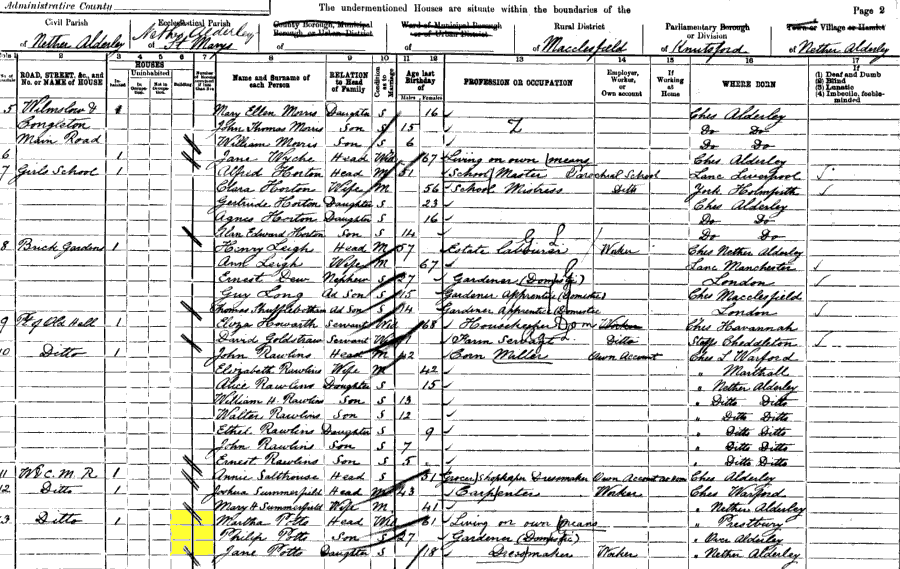 Administrative County
The undermentioned Houses are situate within the boundaries of the
Page 2
Civil Parish
Ecclesiastical Parish
County Borough, Municipal Borough or Urban District
Ward of Municipal Borough or of Urban District
Rural District
Parliamentary Borough or Division
Town or Village or Hamlet
of Nether Alderley
of St Marys
of
of
of Macclesfield
of Knutsford
of Nether Alderley
ROAD, STREET, &c., and No. or NAME of HOUSE
HOUSES
Uninhabited
Building
Name and Surname of each Person
RELATION to Head of Family
Age last Birthday of
Males
Females
PROFESSION OR OCCUPATION
Employer, Worker, or Own account
If Working at Home
WHERE BORN
(1) Deaf and Dumb
(2) Blind
(3) Lunatic
(4) Imbecile, feeble-minded
5 Wilmslow & 1 Mary Ellen Morris Daughter S 16 Ches Alderley
Congleton John Thomas Morris Son S 15 Do Do
Main Road William Morris Son S 6 Do Do
6 1 Jane Wyche Head Wid 67 Living on own means Ches Alderley
7 Girls School 1 Alfred Horton Head M 51 School Master Parochial School Lanc Liverpool
Clara Horton Wife M 56 School Mistress Ditto York Holmfirth
Gertrude Horton Daughter S 23 Ches Alderley
Agnes Horton Daughter S 16 Do Do
Alan Edward Horton Son S 14 Do Do
8 Brick Gardens 1 Henry Leigh Head M 57 Estate Labourer Worker Ches Nether Alderley
Ann Leigh Wife M 67 Lanc Manchester
Ernest Dew Nephew S 27 Gardener (Domestic) London
Guy Long Ad Son S 15 Gardener Apprentice (Domestic) Ches Macclesfield
Thomas Shufflebotham Ad Son S 14 Gardener Apprentice (Domestic London
9 Pt of Old Hall 1 Eliza Howarth Servant Wid 68 Housekeeper Dom Worker Ches Havannah
David Goldstraw Servant Farm Servant Ditto Staff Cheddleton
10 Ditto 1 John Rawlins Head M 42 Corn Miller Own Account Ches L Warford
Elizabeth Rawlins Wife M 42 " Marthall
Alice Rawlins Daughter S 15 " Nether Alderley
William H. Rawlins Son S 13 " Ditto Ditto
Walter Rawlins Son S 12 " Ditto Ditto
Ethel Rawlins Daughter S 9 " Ditto Ditto
John Rawlins Son S 7 " Ditto Ditto
Ernest Rawlins Son S 5 " Ditto Ditto
11 W & C. M. R 1 Annie Salthouse Head S 51 Grocer Shopkeeper Dressmaker Own Account Ches Alderley
12 Ditto 1 Joshua Summerfield Head M 43 Carpenter Worker Ches Warford
Mary H Summerfield Wife M 41 " Nether Alderley
13 Ditto 1 Martha Potts Head Wid 61 Living on own means " Prestbury
Philip Potts Son S 27 Gardener (Domestic) " Over Alderley
Jane Potts Daughter S 18 Dressmaker Worker " Nether Alderley